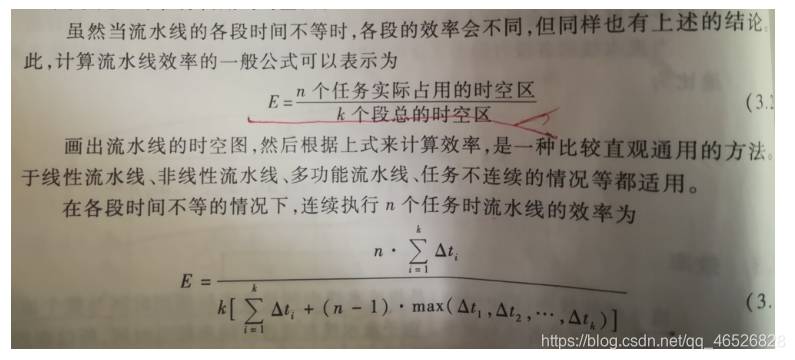 虽然当流水线的各段时间不等时,各段的效率会不同,但同样也有上述的结论。
此,计算流水线效率的一般公式可以表示为
E = n 个任务实际占用的时空区 / k 个段总的时空区 (3.
画出流水线的时空图,然后根据上式来计算效率,是一种比较直观通用的方法。
于线性流水线、非线性流水线、多功能流水线、任务不连续的情况等都适用。
在各段时间不等的情况下,连续执行 n 个任务时流水线的效率为
E = n · ∑_{i=1}^{k} Δt_i / k[ ∑_{i=1}^{k} Δt_i + (n − 1) · max(Δt_1, Δt_2, ⋯, Δt_k)] (3.
https://blog.csdn.net/qq_46526828